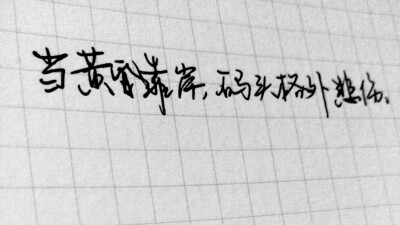 当黄昏靠岸,码头格外悲伤。